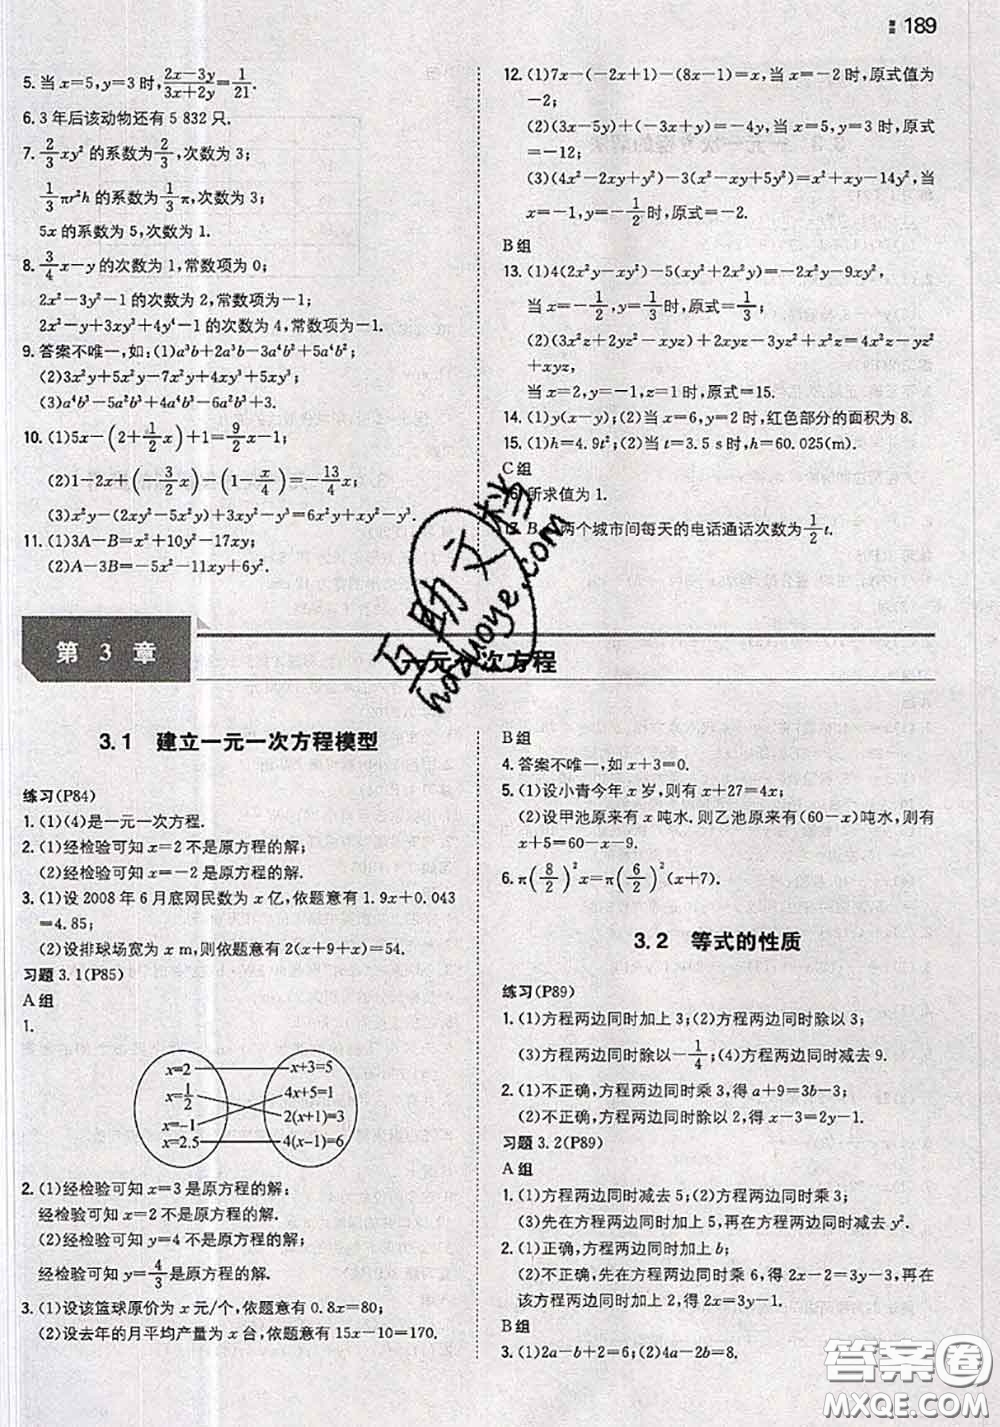 189
5. 当 x=5,y=3 时,(2x-3y)/(3x+2y)=1/21.
6. 3 年后该动物还有 5 832 只.
7. 2/3xy²的系数为2/3,次数为3;
1/3πr²h 的系数为1/3π,次数为3;
5x 的系数为 5,次数为 1.
8. 3/4x-y 的次数为 1,常数项为 0;
2x²-3y²-1 的次数为 2,常数项为-1;
2x²-y+3xy³+4y⁴-1 的次数为 4,常数项为-1.
9. 答案不唯一,如:(1)a³b+2a³b-3a⁴b²+5a⁴b²;
(2)3x²y+5x²y-7x²y+4xy³+5xy³;
(3)a⁴b³-5a⁴b³-6a²b³+3.
10. (1)5x-(2+1/2x)+1=9/2x-1;
(2)1-2x+(-3/2x)-(1-x/4)=-13/4x;
(3)x²y-(2xy²-5x²y)+3xy²-y³=6x²y+xy²-y³.
11. (1)3A-B=x²+10y²-17xy;
(2)A-3B=-5x²-11xy+6y².
12. (1)7x-(-2x+1)-(8x-1)=x,当 x=-2 时,原式值为
-2;
(2)(3x-5y)+(-3x+y)=-4y,当 x=5,y=3 时,原式
=-12;
(3)(4x²-2xy+4y²)-3(x²-xy+5y²)=x²+xy-14y²,当
x=-1,y=-1/2时,原式=-2.
B 组
13. (1)4(2x²y-xy²)-5(xy²+2x²y)=-2x²y-9xy²,
当 x=-1/2,y=1/3时,原式=1/3;
(2)(3x²z+2yz²-xyz)+2xyz-3yz²+x²z=4x²z-yz²
+xyz,
当 x=2,y=-1,z=1 时,原式=15.
14. (1)y(x-y);(2)当 x=6,y=2 时,红色部分的面积为 8.
15. (1)h=4.9t²;(2)当 t=3.5 s 时,h=60.025(m).
C 组
16. 所求值为 1.
17. B 两个城市间每天的电话通话次数为1/2t.
第 3 章
一元一次方程
3.1 建立一元一次方程模型
练习(P84)
1. (1)(4)是一元一次方程.
2. (1)经检验可知 x=2 不是原方程的解;
(2)经检验可知 x=-2 是原方程的解.
3. (1)设 2008 年 6 月底网民数为 x 亿,依题意有 1.9x+0.043
=4.85;
(2)设排球场宽为 x m,则依题意有 2(x+9+x)=54.
习题 3.1(P85)
A 组
1.
x=2
x=1/2
x=-1
x=2.5
x+3=5
4x+5=1
2(x+1)=3
4(x-1)=6
2. (1)经检验可知 x=3 是原方程的解;
经检验可知 x=2 不是原方程的解.
(2)经检验可知 y=4 不是原方程的解;
经检验可知 y=4/3是原方程的解.
3. (1)设该篮球原价为 x 元/个,依题意有 0.8x=80;
(2)设去年的月平均产量为 x 台,依题意有 15x-10=170.
B 组
4. 答案不唯一,如 x+3=0.
5. (1)设小青今年 x 岁,则有 x+27=4x;
(2)设甲池原来有 x 吨水.则乙池原来有(60-x)吨水,则有
x+5=60-x-9;
6. π(8/2)²x=π(6/2)²(x+7).
3.2 等式的性质
练习(P89)
1. (1)方程两边同时加上 3;(2)方程两边同时除以 3;
(3)方程两边同时除以-1/4;(4)方程两边同时减去 9.
2. (1)不正确,方程两边同时乘 3,得 a+9=3b-3;
(2)不正确,方程两边同时除以 2,得 x-3=2y-1.
习题 3.2(P89)
A 组
1. (1)方程两边同时减去 5;(2)方程两边同时乘 3;
(3)先在方程两边同时加上 5,再在方程两边同时减去 y².
2. (1)正确,方程两边同时加上 b;
(2)不正确,先在方程两边同时乘 6,得 2x-2=3y,再在
该方程两边同时加上 2,得 2x=3y+2.
B 组
3. (1)2a-b+2=6;(2)4a-2b=8.
百助文档
baizuoye.com
答案圈
MXQE.COM